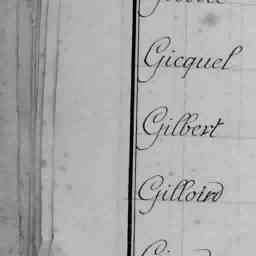 Gicquel
Gilbert
Gilloird